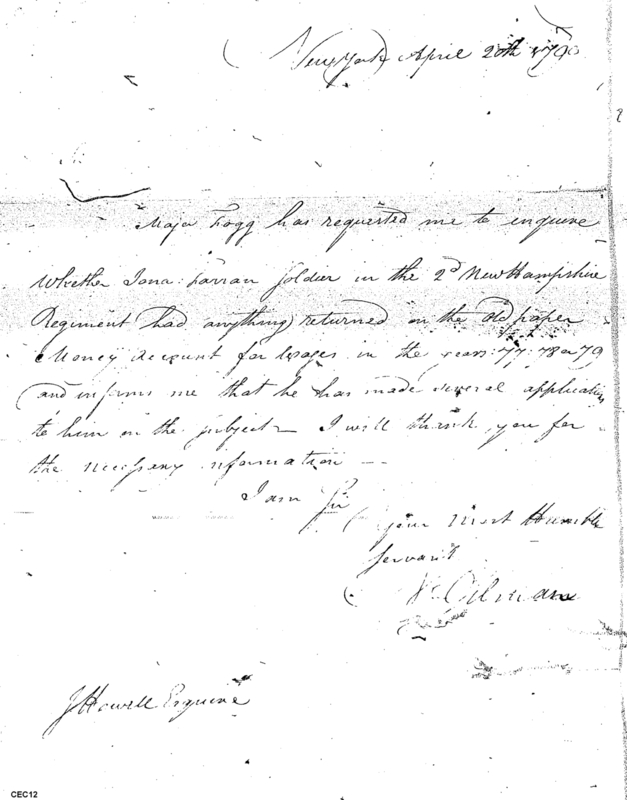 New York April 20th 1790
Sir
Major Fogg has requested me to enquire
whether Jona: Farran Soldier in the 2d New Hampshire
Regiment had anything returned on the old paper
Money account for Wages in the years 77. 78 or 79
and informs me that he has made several applications
to him on the subject— I will thank you for
the necessary information —
I am Sir
your Most Humble
Servant
N Gilman
J Howell Esquire
CEC12